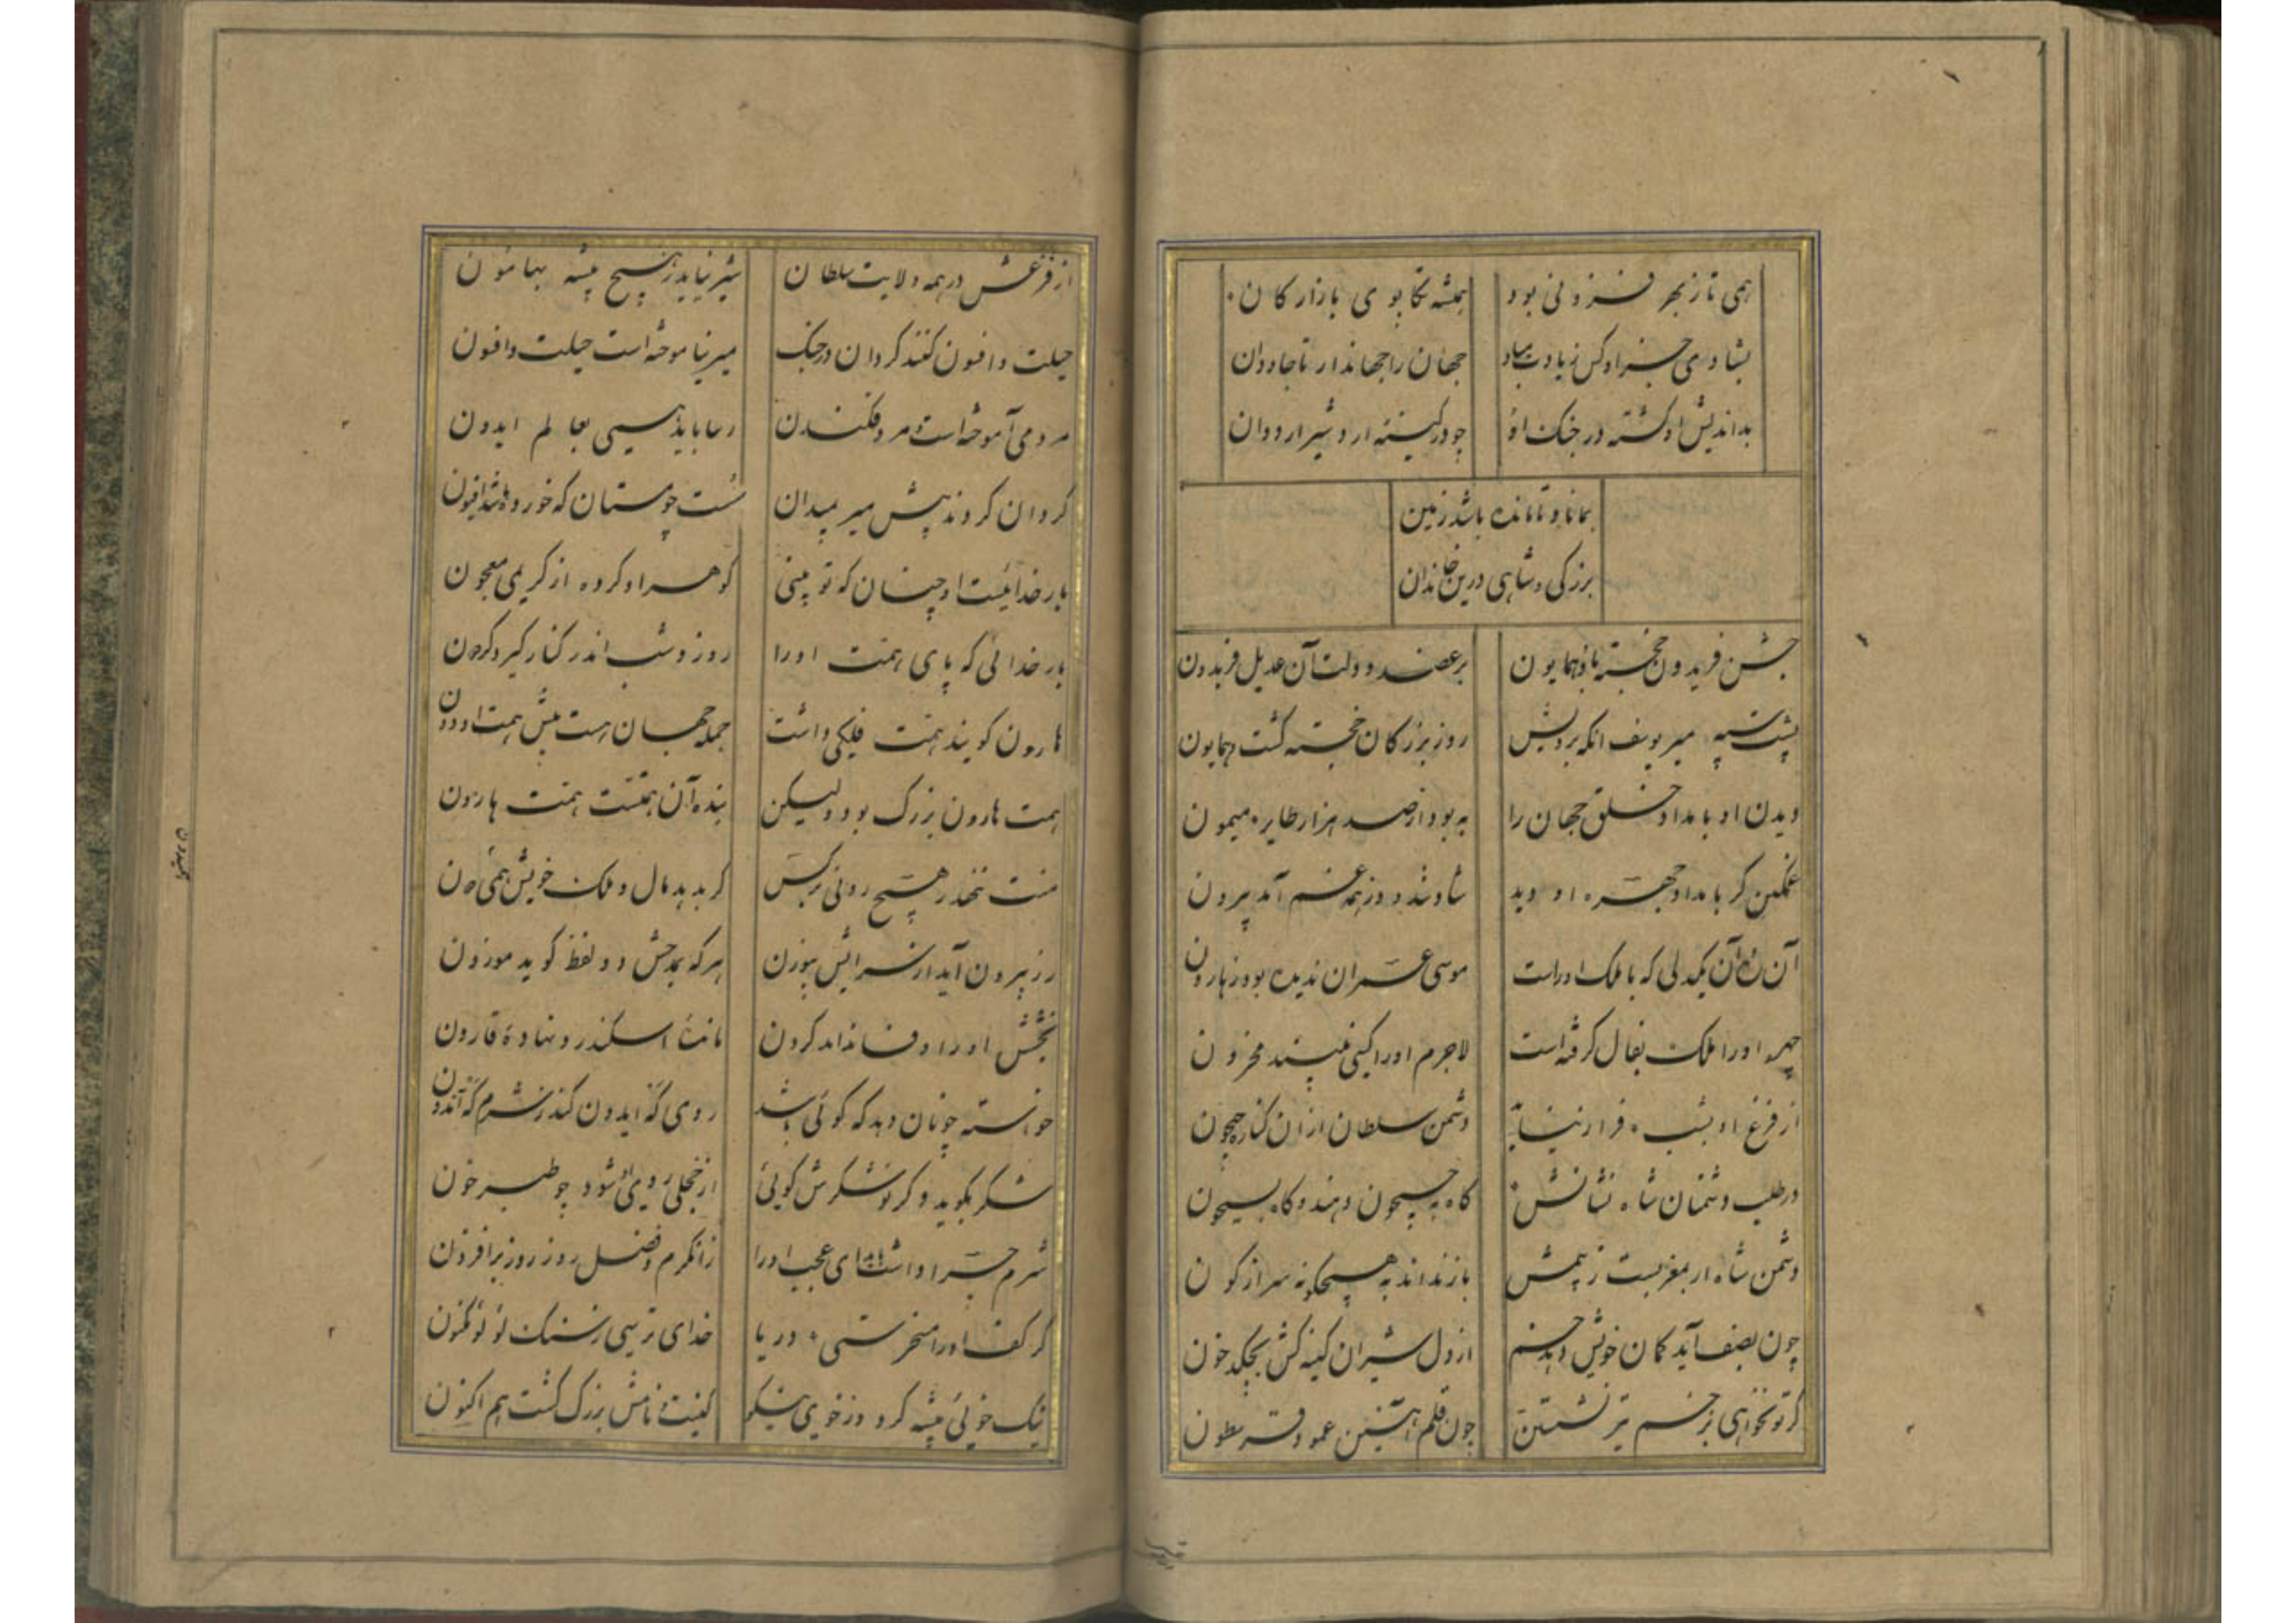 همی تا ز بحر فزونی بود همیشه تکاپوی بازارکان
بشادی جز او کس زیاد و مباد جهان را جهاندار تا جاودان
بداندیش او کشته در جنک او چو در کینه اردشیر اردوان
بماناد تا مانده باشد زمین
بزرکی و شاهی درین خاندان
جشن فریدون خجسته باد و همایون بر عضد دولت آن عدیل فریدون
پشت سپه میر یوسف انکه برویش روز بزرکان خجسته کشت و همایون
دیدن او بامداد خلق جهان را به بود از صد هزار طایر میمون
غمکین کر بامداد چهره او دید شاد شد و وز همه غم آمد بیرون
آن یکدلی که با ملک او راست موسی عمران ندیده بود ز هارون
چهره او را ملک بفال کرفته است لاجرم او را کسی نبیند محزون
از فزغ او بشب فراز نیاید دشمن سلطان ازان کناره جیحون
در طلب دشمنان شاه نشانش کاه به جیحون دهند و کاه بسیحون
دشمن شاه ار بمغربست ز بیمش باز نداند به هیچکونه سر از کون
چون بصف آید کمان خویش دهد خم از دل شیران کینه کش بچکد خون
کر تو نخواهی بزخم تیر نشستن چون قلم آهنین عمود و قرسطون
از فزعش در همه ولایت سلطان شیر نیاید ز هیچ بیشه بهامون
حیلت و افسون کنند کردان در جنک میر نیاموخته است حیلت و افسون
مردمی آموخته است و مرد فکندن
کردان کردند پیش میر بمیدان سست چو مستان که خورده باشد افیون
بار خدائیست او چنان که تو بینی کوهر او کرده از کریمی معجون
بار خدائی که پای همت او را روز و شب اندر کنار کیرد کردن
هارون کویند همت فلکی داشت جمله جهان هست پیش همت او دون
همت هارون بزرک بود ولیکن بنده آن همتست همت هارون
منت ننهد هیچ روئی بر کس کر بدهد مال و ملک خویش همی دون
زر بیرون آید از سرایش بوزن هرکه بمدحش دو لفظ کوید موزون
بخشش او را وفا نداند کردن مانده اسکندر و نهاده قارون
خواسته چونان دهد که کوئی باشد روی که ایدون کند ز شرم که آندون
شکر بکوید و کر تو شکرش کوئی از خجلی روی او شود چو طبرخون
شرم چرا داشت ای عجب او را زانکرم و فضل روز روز برافزون
کر کف او را مسخرستی دریا خدای ترسی ز سنک لؤلؤ مکنون
نیک خوئی پیشه کرد وز خوی نیکو کنیت و نامش بزرک کشت هم اکنون